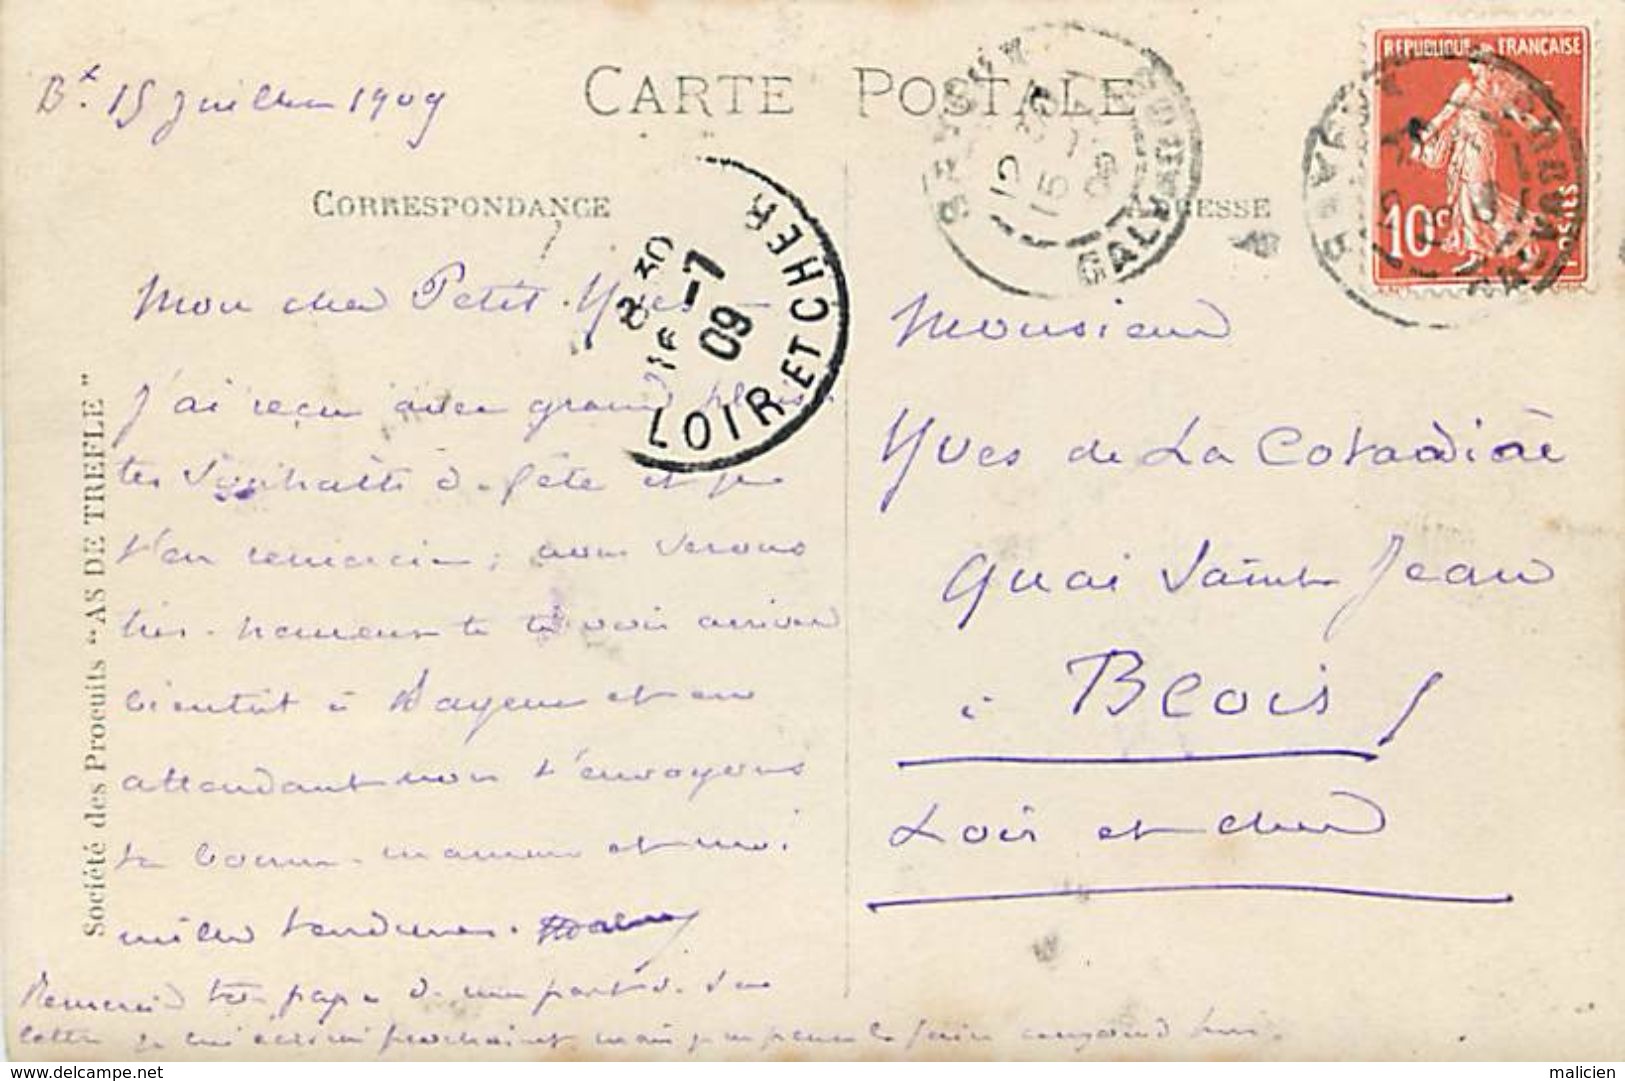 Bx. 15 Juillet 1909
CARTE POSTALE
CORRESPONDANCE
ADRESSE
REPUBLIQUE FRANÇAISE
10c POSTES
BAYEUX
CALVADOS
8 30
16 -7
09
LOIR ET CHER
Société des Procuits "AS DE TREFLE"
Mon cher Petit Yves -
J'ai reçu avec grand plaisir
tes souhaits de fête et je
t'en remercie; nous serons
très heureux de te voir arriver
bientôt à Bayeux et en
attendant nous t'envoyons
ta bonne-maman et moi
mille tendresses.
Remercie ton papa de ma part de sa
lettre je lui écrirai prochainement mais je ne peux le faire aujourd'hui.
Monsieur
Yves de La Cotardière
Quai Saint Jean
à Blois
Loir et cher
delcampe.net
malicien